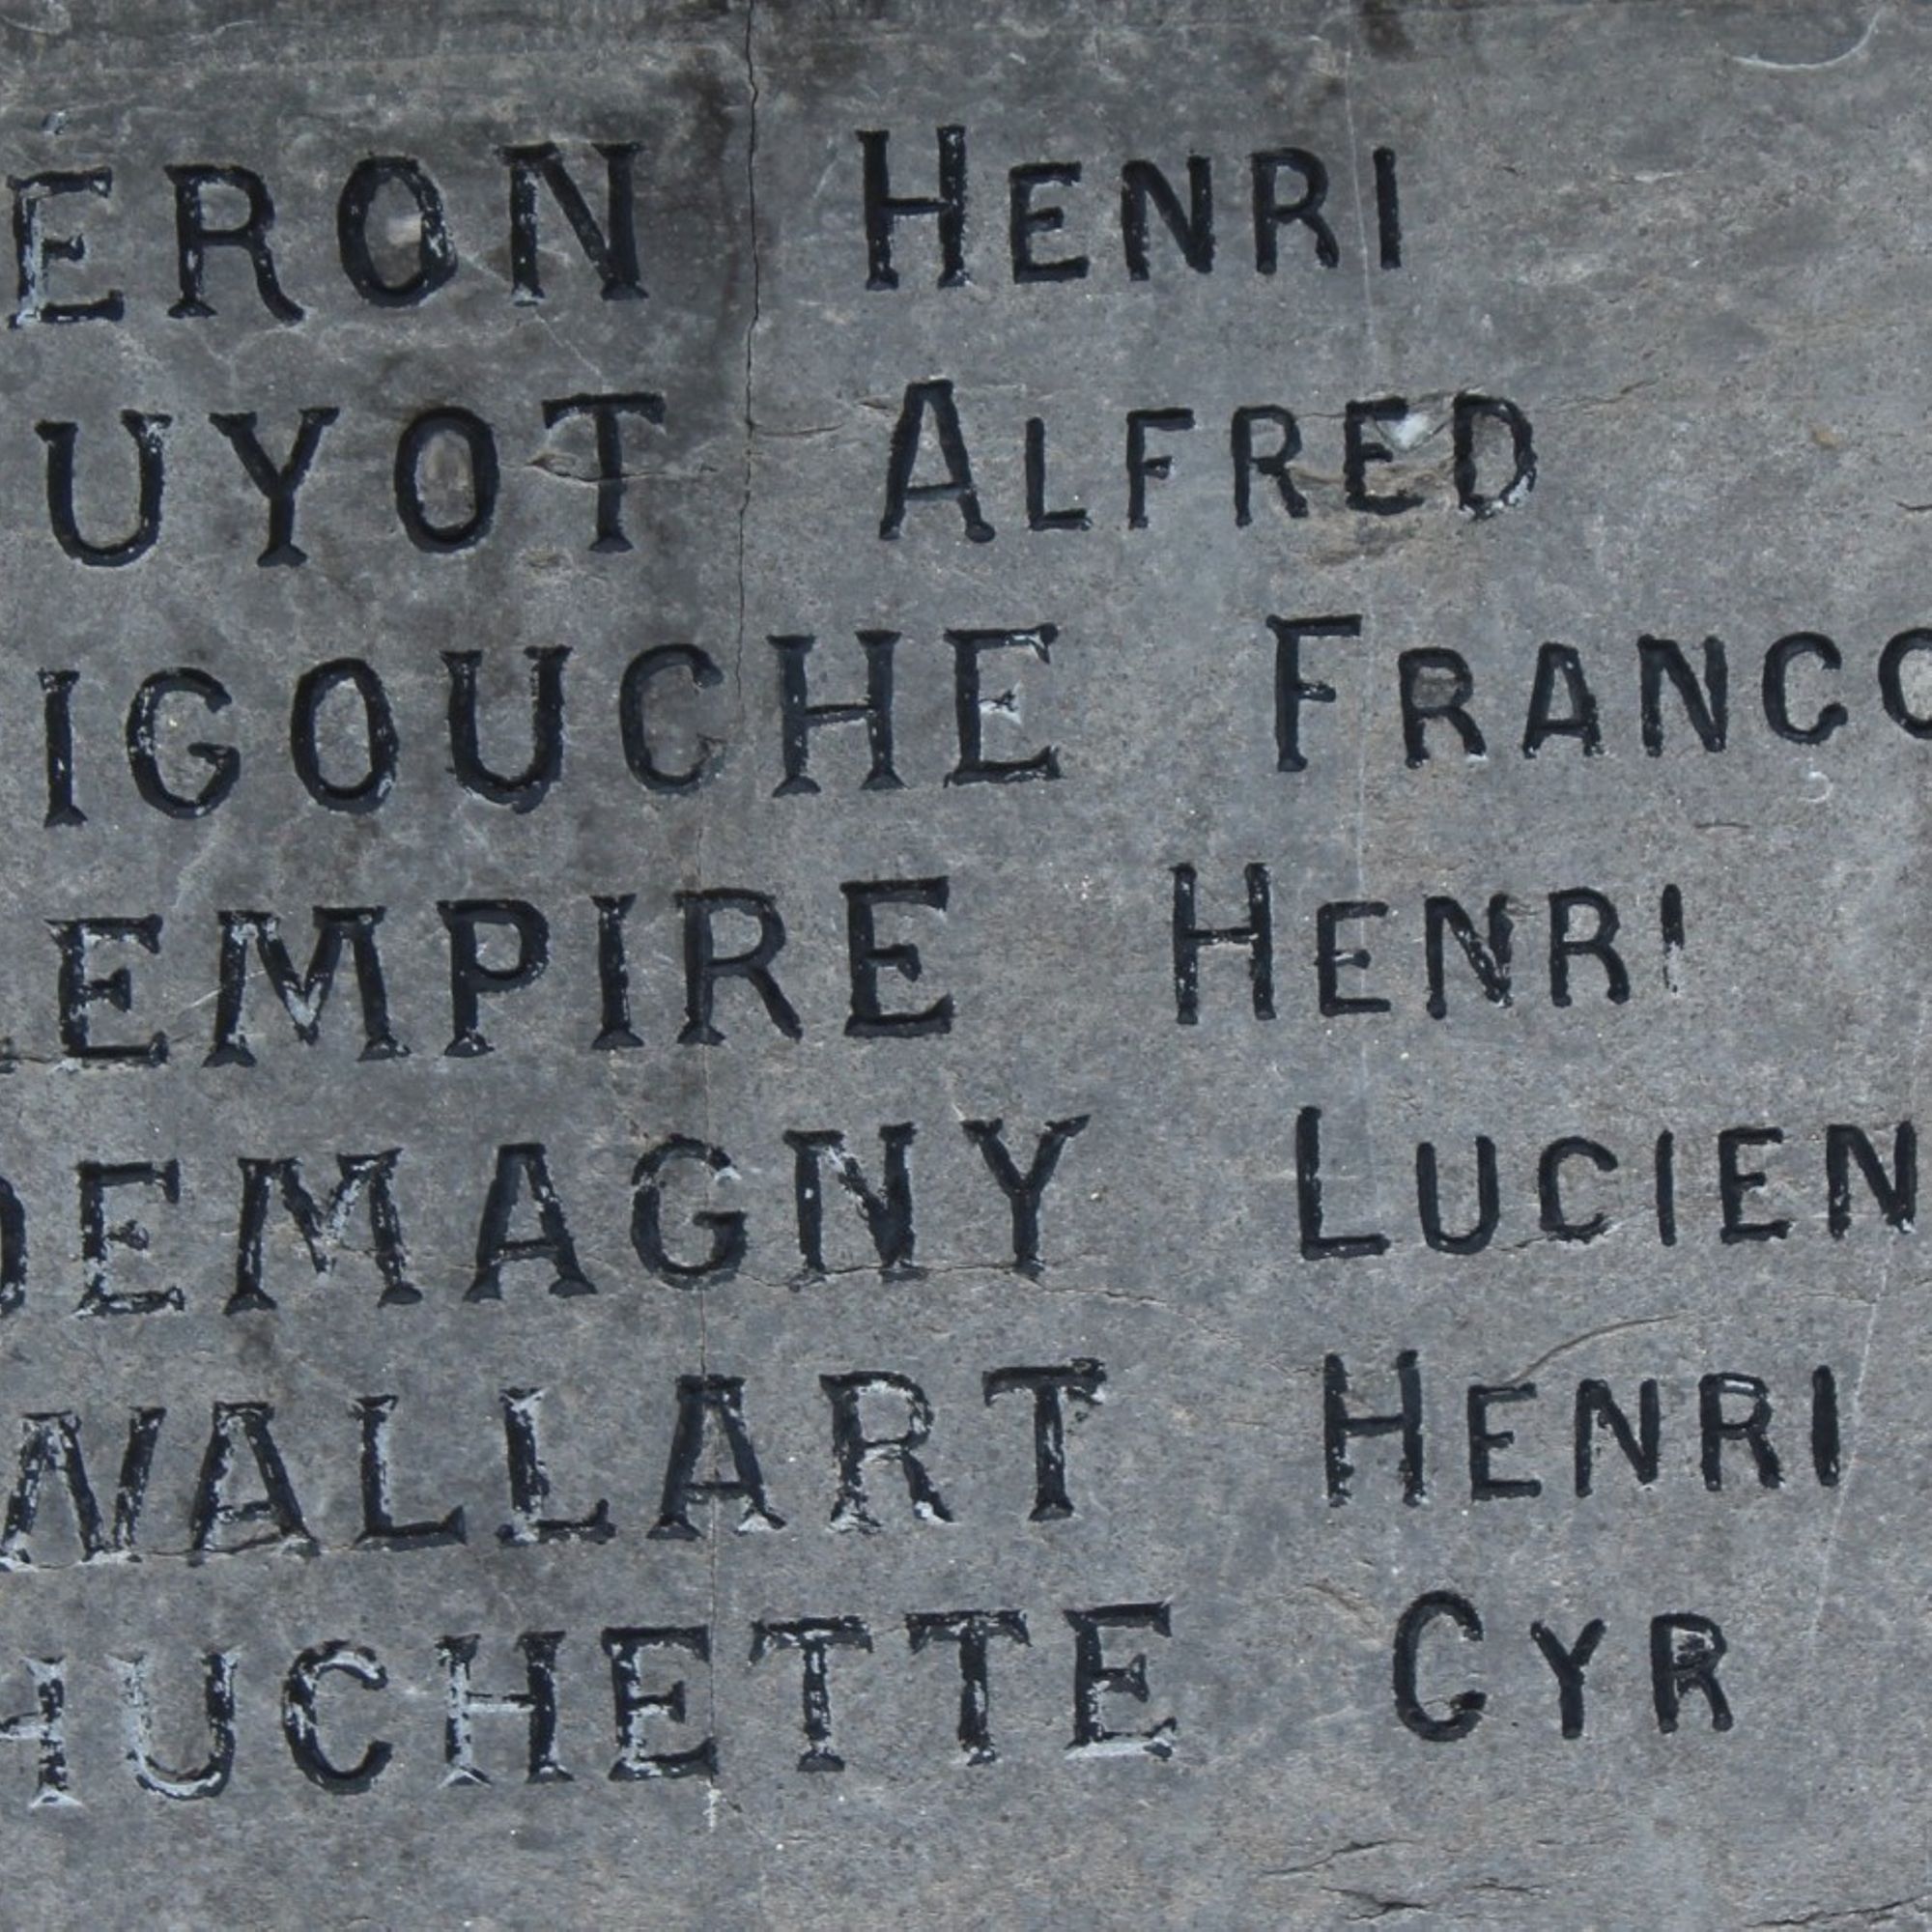 ERON HENRI
UYOT ALFRED
IGOUCHE FRANCO
EMPIRE HENRI
DEMAGNY LUCIEN
WALLART HENRI
HUCHETTE CYR